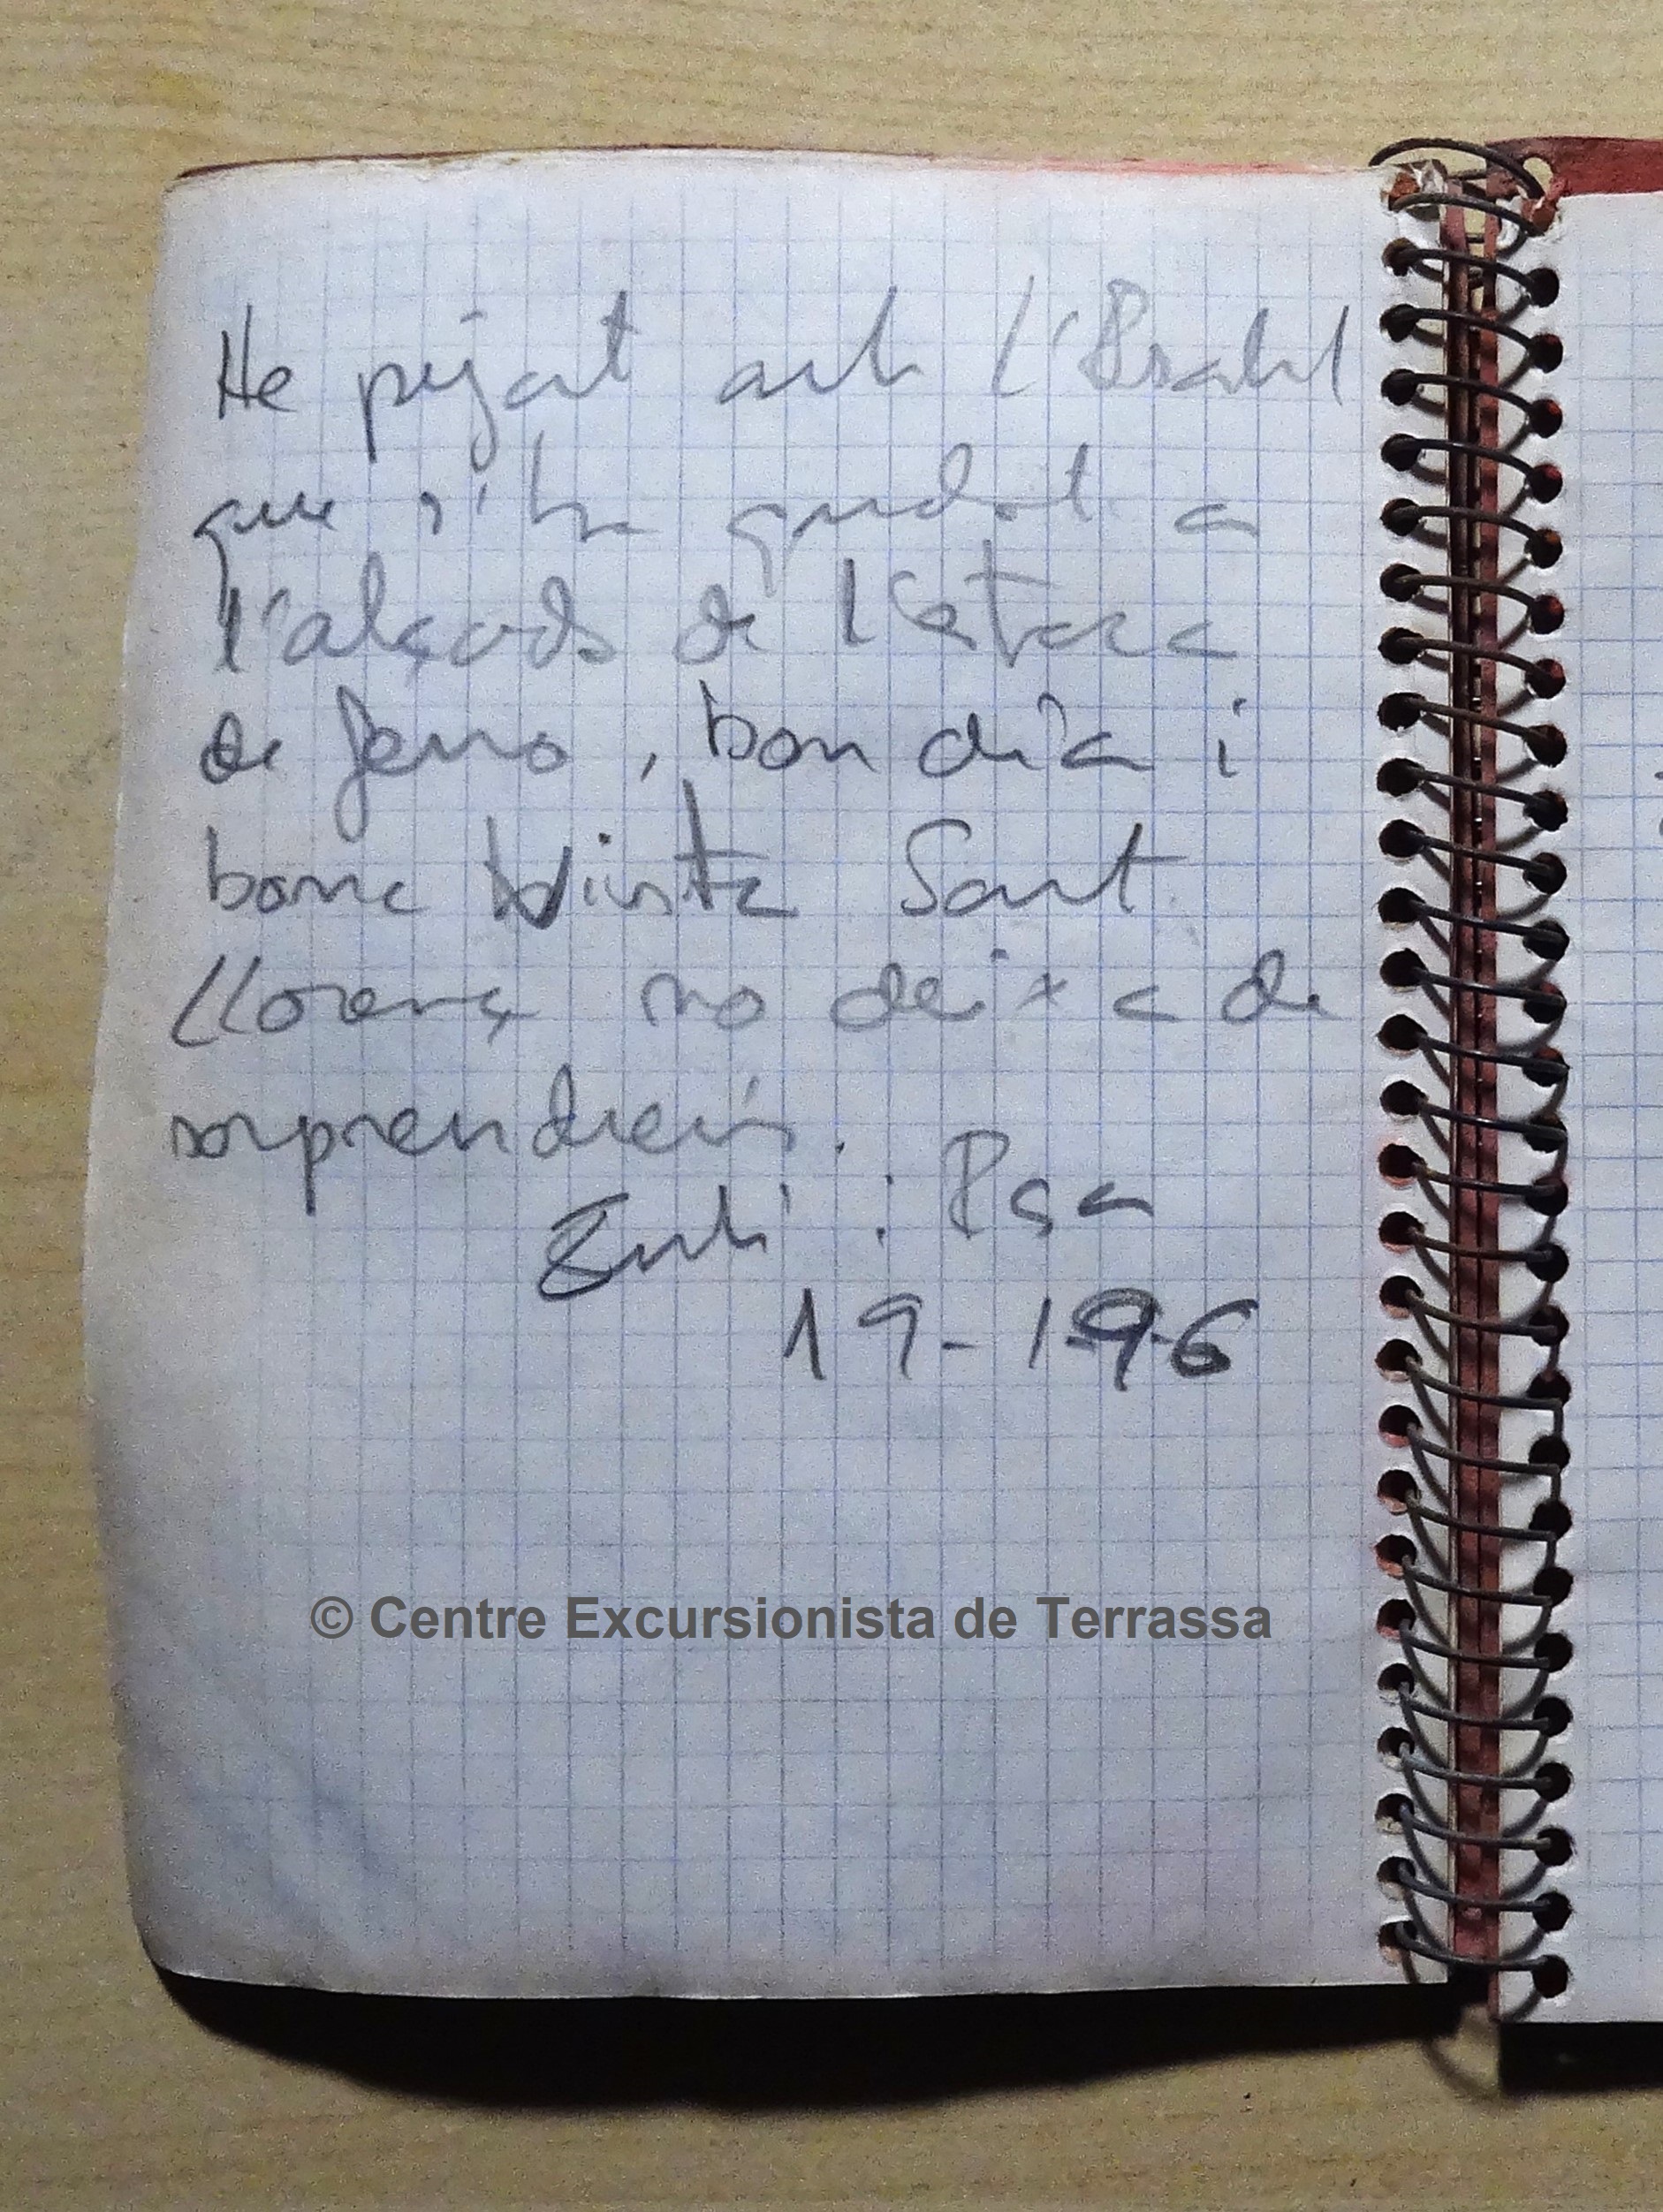 He pujat amb l'
que s'ha quedat a
l'alçada de l'estaca
de ferro, bon dia i
bona vista Sant
Llorenç no deixa de
sorprendre'ns.
19-1-96
© Centre Excursionista de Terrassa